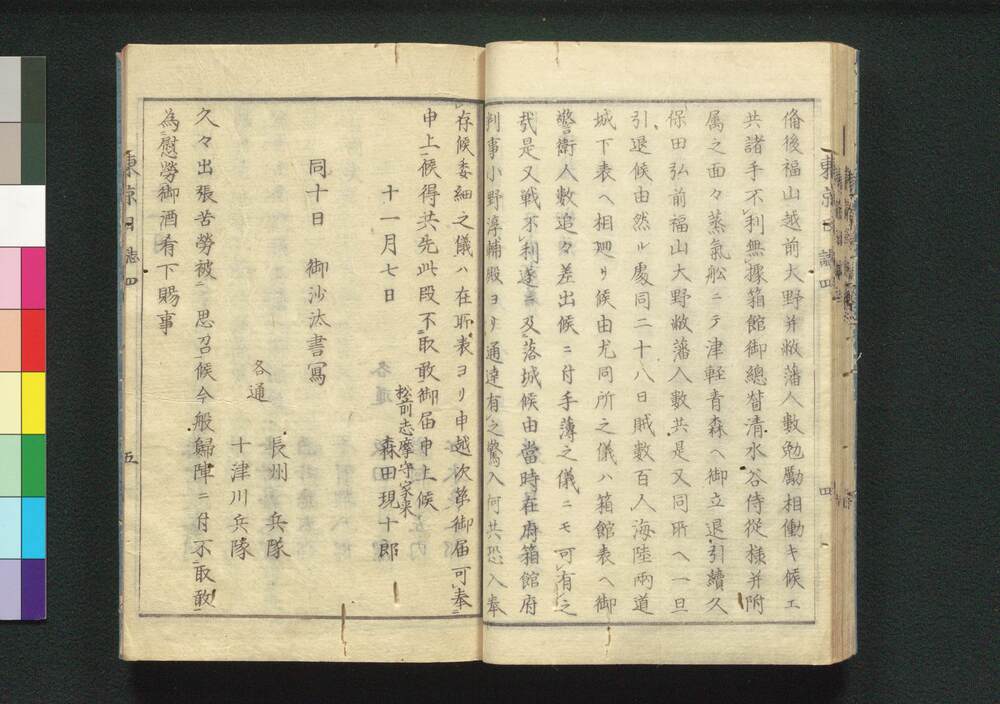 備後福山越前大野并敝藩人數勉勵相働キ候エ
共諸手不利無據箱館御總督清水谷侍從様并附
属之面々蒸氣舩ニテ津軽青森ヘ御立退引續久
保田弘前福山大野敝藩人數共是又同所ヘ一旦
引退候由然ル處同二十八日賊數百人海陸両道
城下表ヘ相廻リ候由尤同所之儀ハ箱館表ヘ御
警衛人數追々差出候ニ付手薄之儀ニモ可有之
哉是又戦不利遂ニ及落城候由當時在府箱館府
判事小野淳輔殿ヨリ通達有之驚入何共恐入奉
東京日誌四
四
存候委細之儀ハ在所表ヨリ申越次第御届可奉
申上候得共先此段不取敢御届申上候
松前志摩守家来
十一月七日
森田現十郎
同十日
御沙汰書寫
各通
長州
兵隊
十津川兵隊
久々出張苦勞被思召候今般歸陣ニ付不取敢
為慰勞御酒肴下賜事
東京日誌四
五